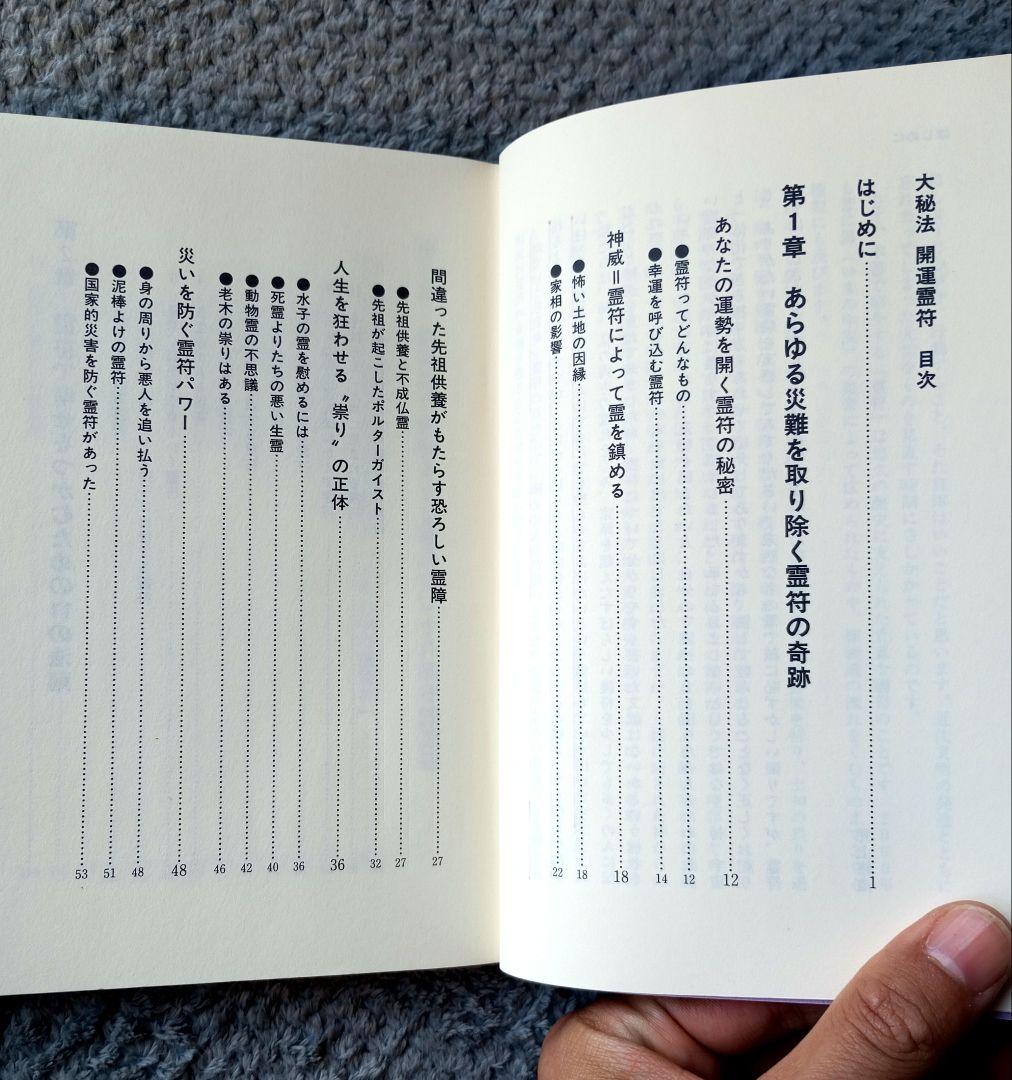 大秘法 開運霊符 目次
はじめに……1
第1章 あらゆる災難を取り除く霊符の奇跡
あなたの運勢を開く霊符の秘密……12
●霊符ってどんなもの……12
●幸運を呼び込む霊符……14
神威＝霊符によって霊を鎮める……18
●怖い土地の因縁……18
●家相の影響……22
間違った先祖供養がもたらす恐ろしい霊障……27
●先祖供養と不成仏霊……27
●先祖が起こしたポルターガイスト……32
人生を狂わせる〝祟り〟の正体……36
●水子の霊を慰めるには……36
●死霊よりたちの悪い生霊……40
●動物霊の不思議……42
●老木の祟りはある……46
災いを防ぐ霊符パワー……48
●身の周りから悪人を追い払う……48
●泥棒よけの霊符……51
●国家的災害を防ぐ霊符があった……53